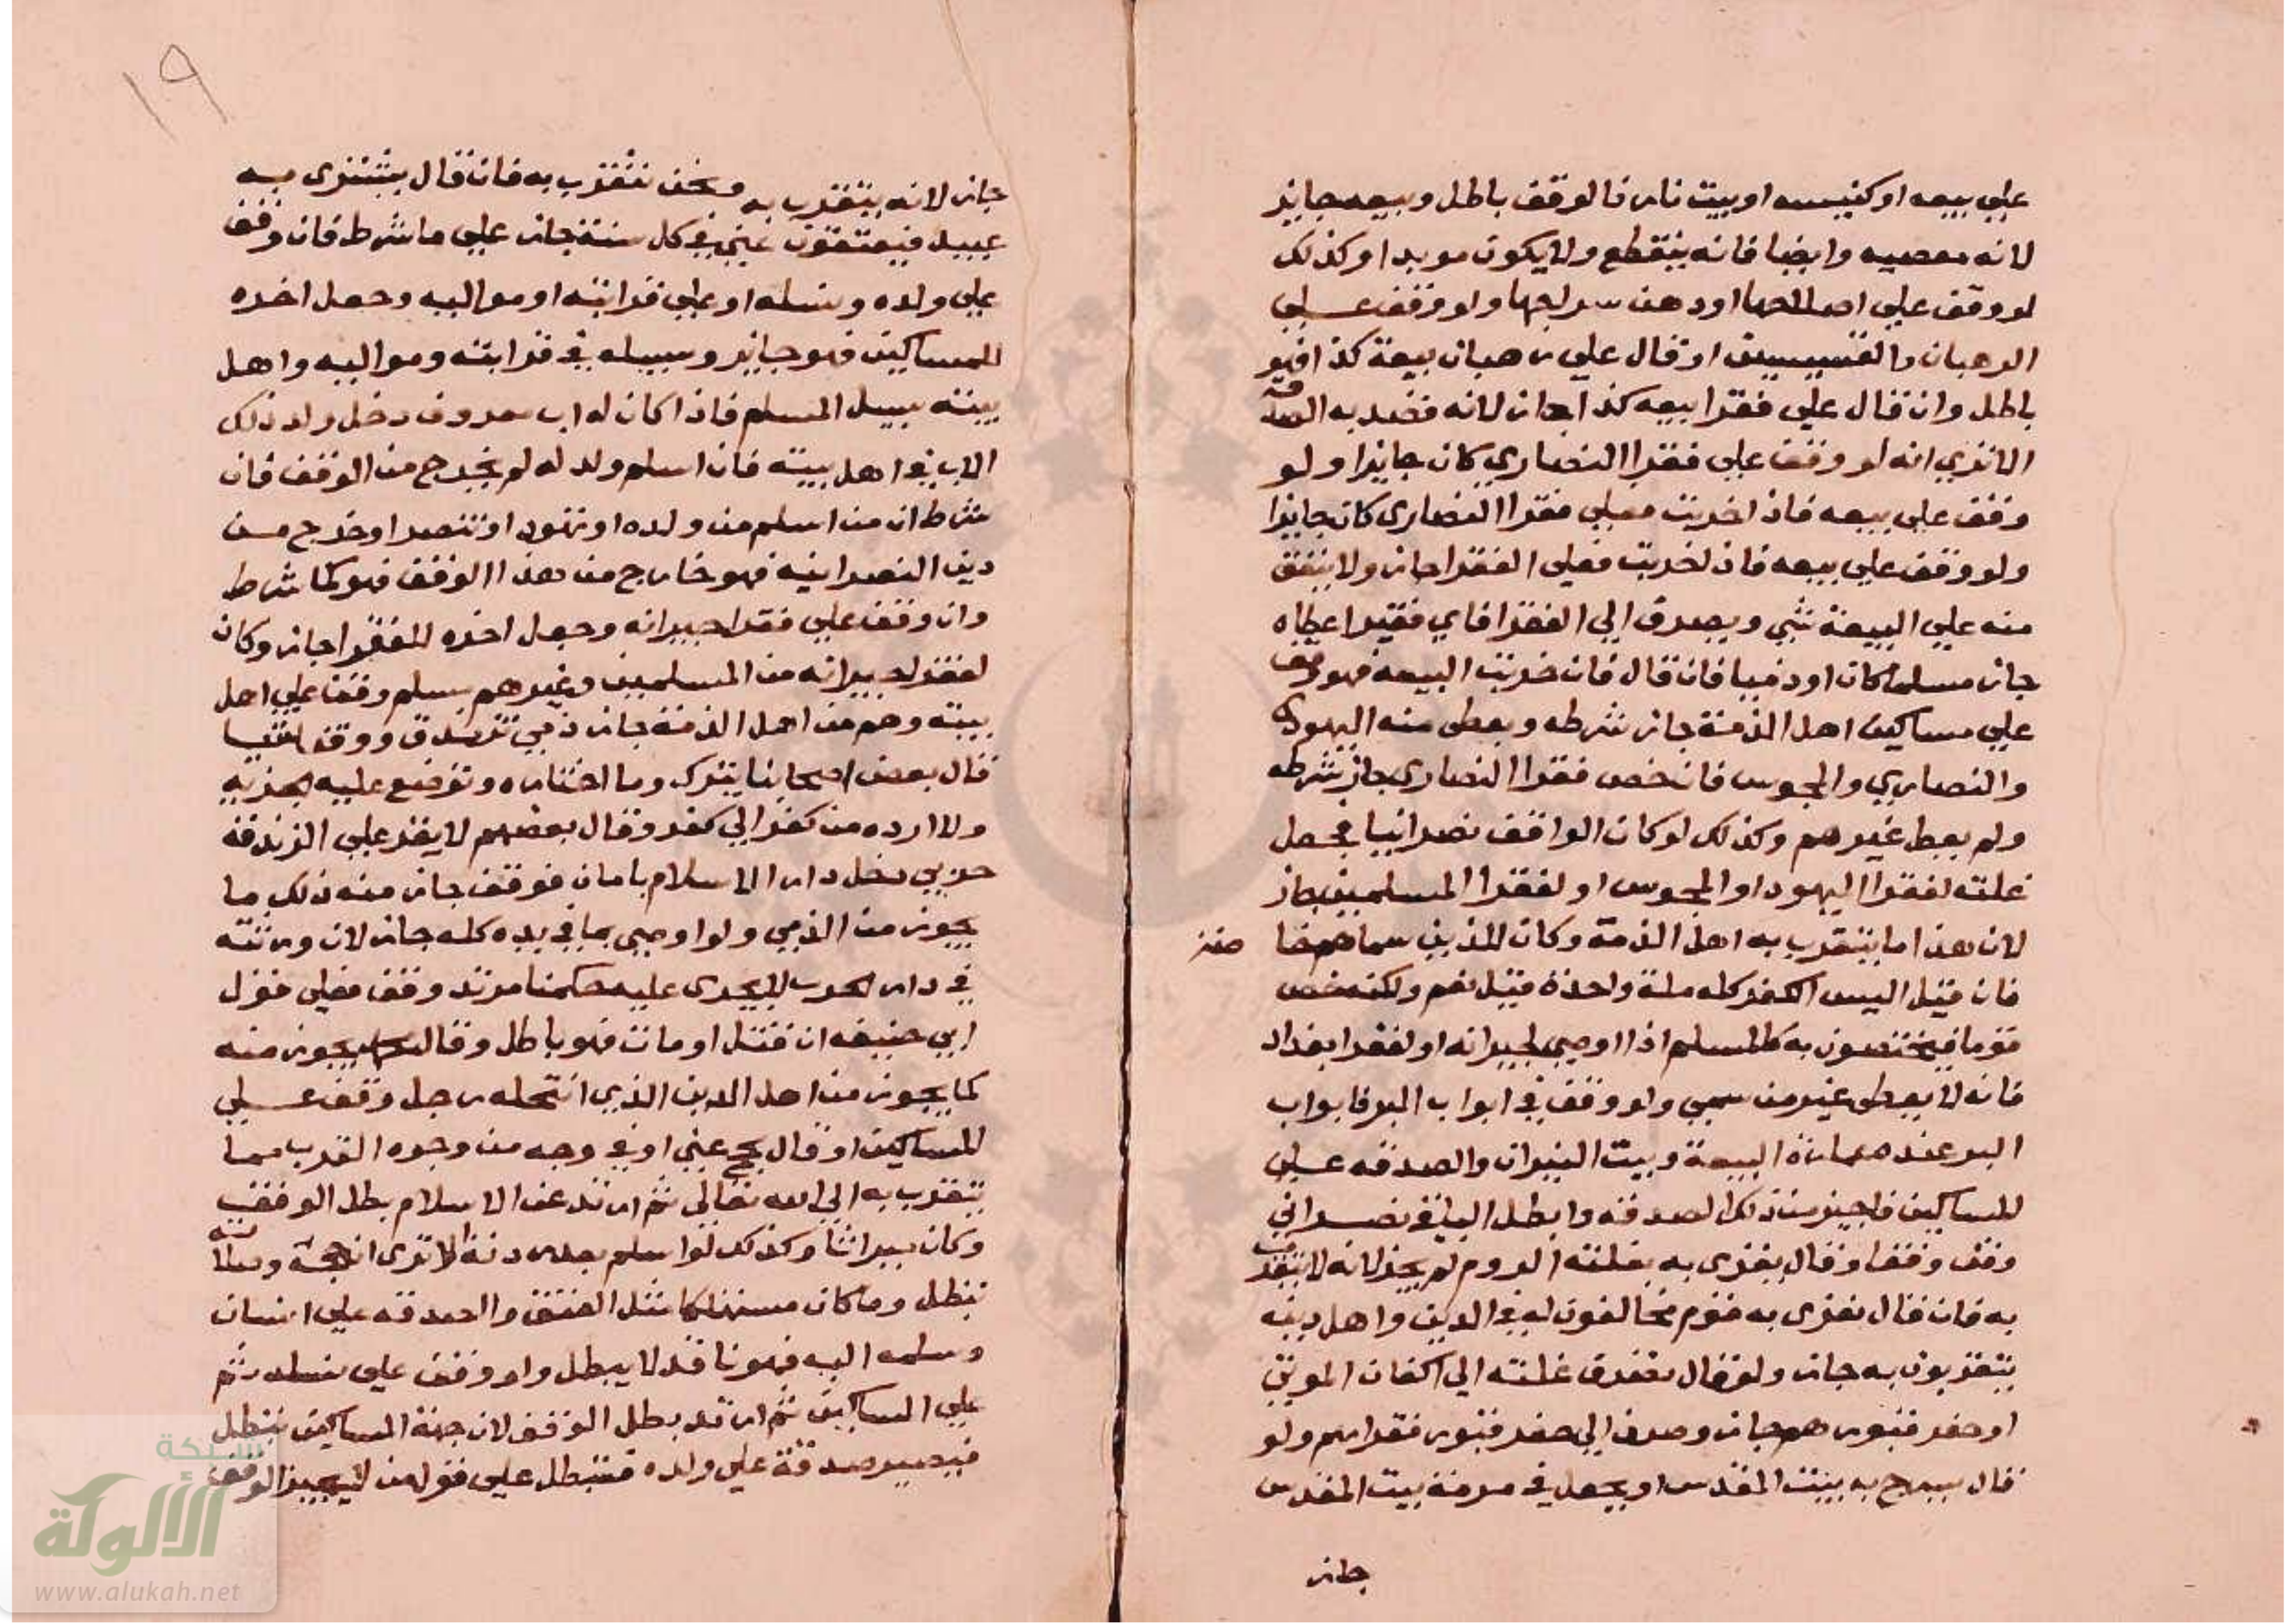 علي بيعه او كنيسه او بيت نار فالوقف باطل وبيعه جايز
لانه معصيه وايضا فانه ينقطع ولا يكون موبدا وكذلك
لو وقف علي اصلاحها او دهن سراجها ولو وقف علي
الرهبان والقسيسين او قال علي رهبان بيعة كذا فهو
باطل وان قال علي فقرا بيعه كذا جاز لانه قصد به الصدقة
الا تري انه لو وقف علي فقرا النصاري كان جايزا ولو
وقف علي بيعه فاذا خربت فعلي فقرا النصاري كان جايزا
ولو وقف علي بيعه فاذا خربت فعلي الفقرا جاز ولا ينفق
منه علي البيعة شي ويصرف الي الفقرا فاي فقير اعطاه
جاز مسلما كان او ذميا فان قال فان خربت البيعه فهو وقف
علي مساكين اهل الذمة جاز شرطه ويعطي منه اليهودي
والنصاري والمجوس فان خص فقرا النصاري جاز شرطه
ولم يعط غيرهم وكذلك لو كان الواقف نصرانيا فجعل
غلته لفقرا اليهود او المجوس او لفقرا المسلمين جاز
لان هذا ما يتقرب به اهل الذمة وكان للذين سماهم
فان قيل اليس الكفر كله ملة واحدة قيل نعم ولكنه خص
قوما فيختصون به كالمسلم اذا اوصي لجيرانه او لفقرا بغداد
فانه لا يعطي غير من سمي ولو وقف في ابواب البر فابواب
البر عندهم عمارة البيعة وبيت النيران والصدقه علي
المساكين فاجيز من ذلك الصدقه وابطل الباقي نصراني
وقف وقفا وقال يغزي به بغلته الروم لم يجز لانه لا يتقرب
به فان قال يغزي به قوم مخالفون له في الدين واهل دينه
يتقربون به جاز ولو قال تفرق غلته الي اكفان الموتي
او حفر قبورهم جاز وصرف الي حفر قبور فقرايهم ولو
قال يسرج به بيت المقدس او يجعل في مرمة بيت المقدس
جاز
١٩
جاز لانه يتقرب به ونحن نتقرب به فان قال يشتري به
عبيد فيعتقون عني في كل سنة جاز علي ما شرط فان وقف
علي ولده ونسله او علي قرابته او مواليه وجعل اخره
للمساكين فهو جايز وسبيله في قرابته ومواليه واهل
بيته سبيل المسلم فاذا كان له اب معروف دخل ولد ذلك
الاب في اهل بيته فان اسلم ولد له لم يخرج من الوقف فان
شرط ان من اسلم من ولده او تهود او تنصر او خرج من
دين النصرانيه فهو خارج من هذا الوقف فهو كما شرط
وان وقف علي فقرا جيرانه وجعل اخره للفقرا جاز وكان
لفقرا جيرانه من المسلمين وغيرهم مسلم وقف علي اهل
بيته وهم من اهل الذمة جاز ذمي تزندق ووقف
قال بعض اصحابنا يترك وما اختاره وتوضع عليه الجزيه
ولا ارده من كفر الي كفر وقال بعضهم لا يقر علي الزندقه
حربي دخل دار الاسلام بامان فوقف جاز منه ذلك ما
يجوز من الذمي ولو اوصي بما في يده كله جاز لان ورثته
في دار الحرب لا يجري عليه حكمنا مرتد وقف فعلي قول
ابي حنيفه ان قتل او مات فهو باطل وقال يجوز منه
كما يجوز من اهل الدين الذي انتحله رجل وقف علي
المساكين او قال يحج عني او في وجه من وجوه القرب مما
يتقرب به الي الله تعالي ثم ارتد عن الاسلام بطل الوقف
وكان ميراثا وكذلك لو اسلم بعد ردته الا تري ان حجه وصلاته
تبطل وما كان مستهلكا مثل العتق والصدقه علي انسان
وسلمه اليه فهو نافذ لا يبطل ولو وقف علي نسله ثم
علي المساكين ثم ارتد بطل الوقف لان جهة المساكين تبطل
فيصير صدقة علي ولده فتبطل علي قول من لا يجيز الوقف
شبكة
الألوكة
www.alukah.net